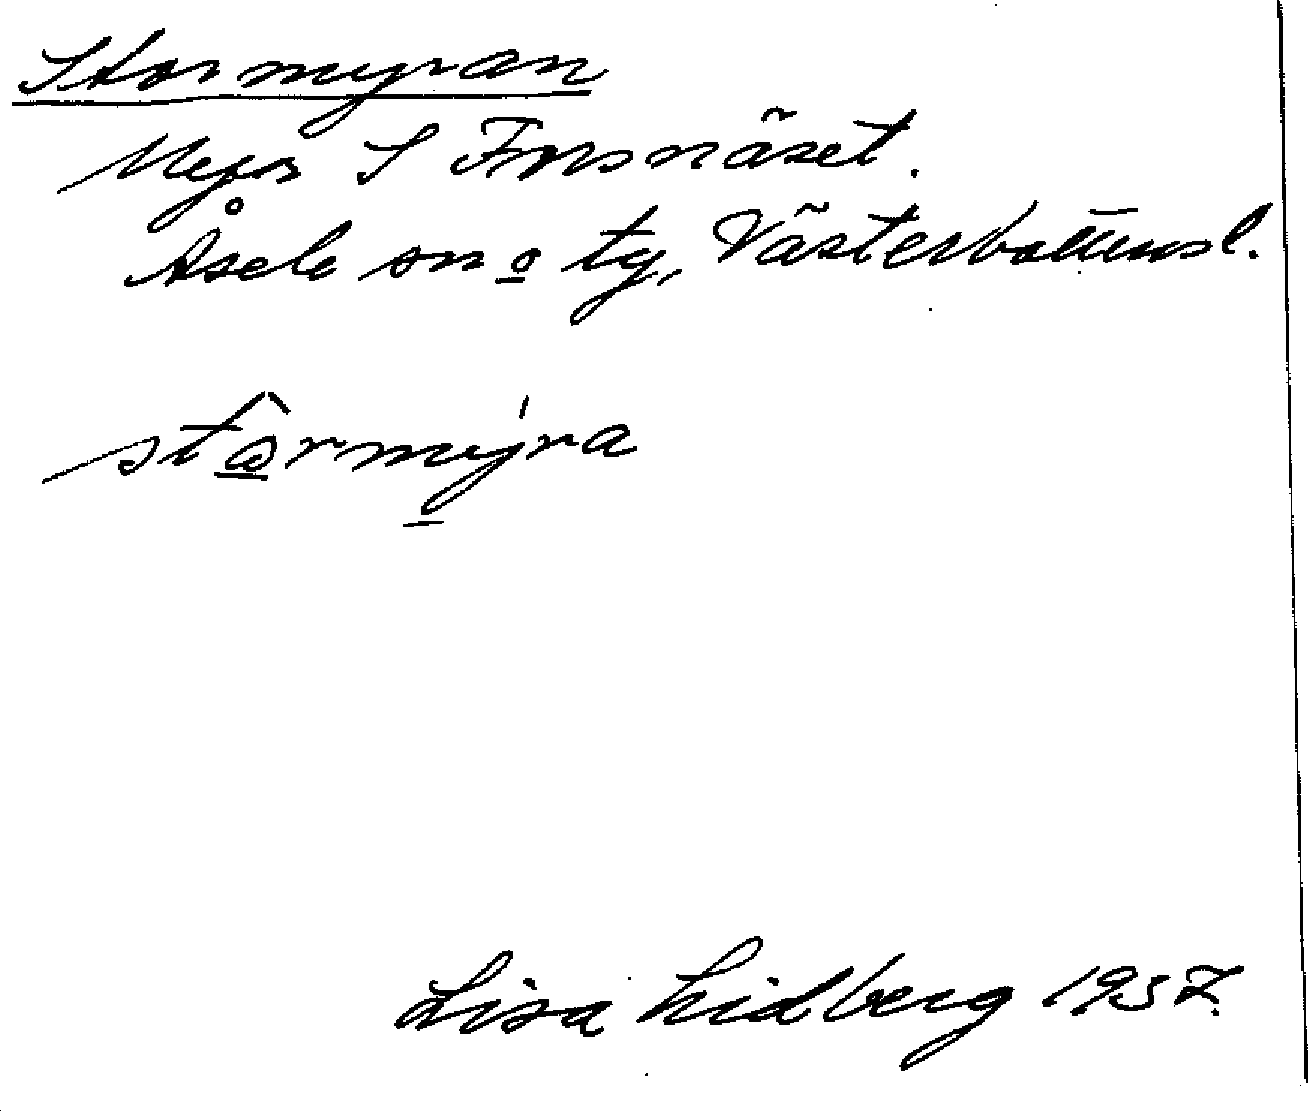 Stormyran
Myr S Forsnäset.
Åsele sn o tg, Västerbottensl.
stôrmýra
Lisa Lidberg 1937.